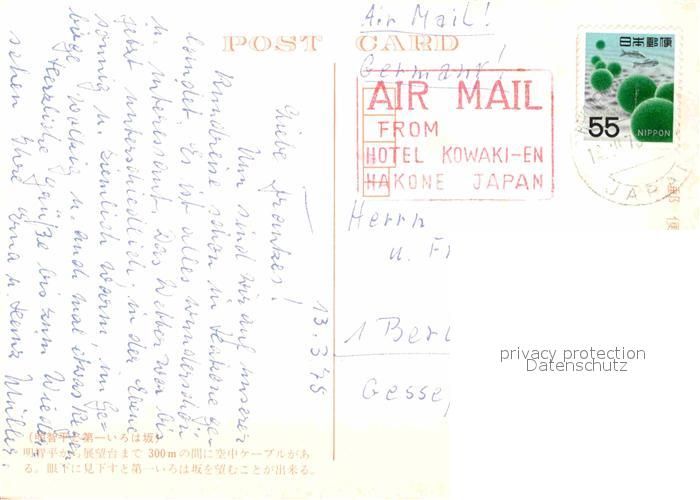 POST CARD
Air Mail!
Germany!
AIR MAIL
FROM
HOTEL KOWAKI-EN
HAKONE JAPAN
日本郵便
55
NIPPON
JAPAN
郵便
13.3.75
Liebe
Nun sind wir auf unserer
Rundreise schon in Hakone ge-
landet. Es ist alles wunderschön
u. interessant. Das Wetter war bis
jetzt unterschiedlich, in der Ebene
sonnig u. ziemlich warm, im Ge-
birge wolkig u. auch mal etwas Regen.
Herzliche Grüße bis zum Wieder-
sehen Eure Erna u. Heinz Müller.
Herrn
u. Fr
1 Berl
Gesse
privacy protection
Datenschutz
(明智平と第一いろは坂)
明智平から展望台まで 300mの間に空中ケーブルがあ
る。眼下に見下すと第一いろは坂を望むことが出来る。